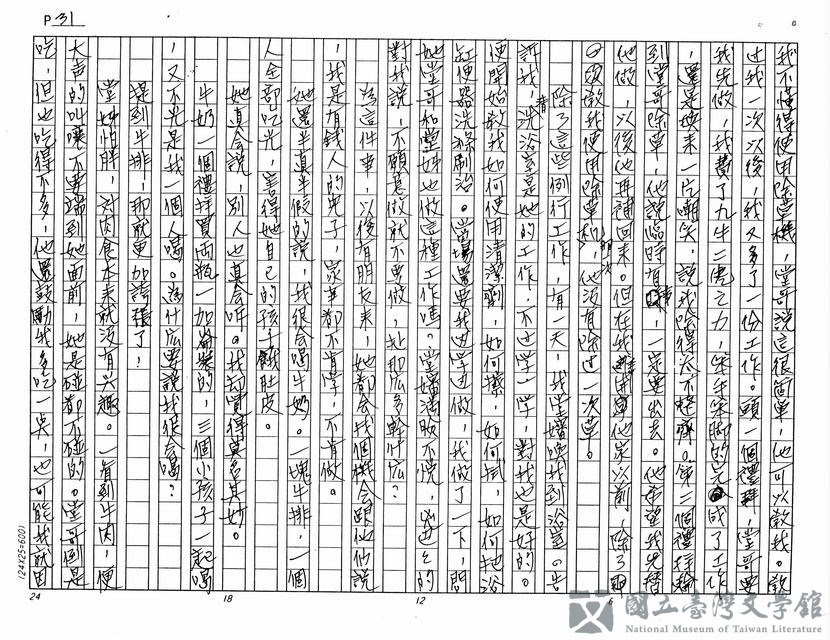 P 31
我不懂得使用除草機,堂哥說這很簡單,他可以教我。教
过我一次以後,我又多了一份工作。頭一個禮拜,堂哥要
我先做,我費了九牛二虎之力,笨手笨腳的完成了工作
,還是換來一片嘲笑,說我唸得太不整齊。第二個禮拜輪
到堂哥除草,他說臨時有事,一定要出去。他希望我先替
他做,以後他再補回來。但在我離開他家以前,除了
頭教我使用除草機那一次,他沒有除过一次草。
除了這些例行工作,有一天,我堂嬸喚我到浴室。告
訴我,洗浴室是她的工作,不过学一学,對我也是好的。
便開始教我如何使用清潔劑,如何擦,如何抹,如何把浴
缸便器洗滌刷治。當場還要我边学边做,我做了一下,問
她堂哥和堂姊也做這種工作嗎?堂嬸滿臉不悅,凶凶的
對我說,不願意做就不要做,扯那麼多幹什麼?
為這件事,以後有朋友來,她都会找個機会跟他们說
,我是有錢人的兒子,家事都不肯学,不肯做。
她還半真半假的說,我很会喝牛奶。一塊牛排,一個
人全部吃光,害得她自己的孩子餓肚皮。
她真会說,別人也真会听。我却覺得莫名其妙。
牛奶一個禮拜買兩瓶一加侖裝的,三個小孩子一起喝
,又不光是我一個人喝。為什麼要說我很会喝?
提到牛排,那就更加誇張了!
堂姊怕胖,对肉食本来就没有兴趣。一看到牛肉,便
大声的叫嚷不要端到她面前,她是碰都不碰的。堂哥倒是
吃,但也吃得不多,他還鼓勵我多吃一点,也可能我就因
24
18
12
6
(24X25=600)
國立臺灣文學館
National Museum of Taiwan Literature